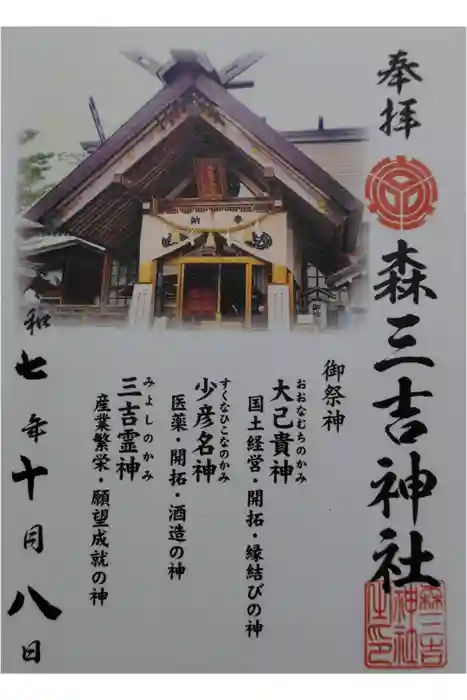 奉拝
森三吉神社
御祭神
おおなむちのかみ
大己貴神
国土経営・開拓・縁結びの神
すくなひこなのかみ
少彦名神
医薬・開拓・酒造の神
みよしのかみ
三吉霊神
産業繁栄・願望成就の神
和七年十月八日
奉納
森三吉
神社